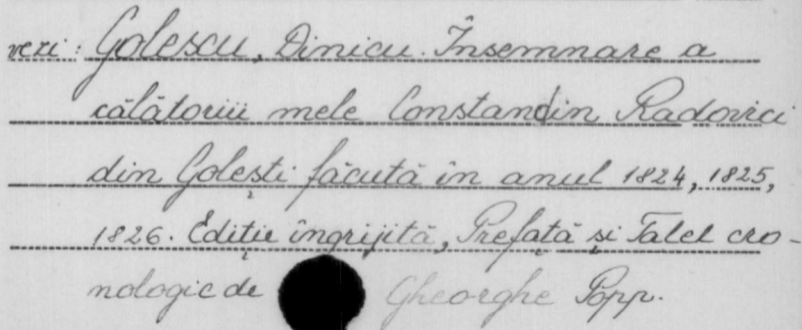 vezi: Golescu, Dinicu. Însemnare a
călătoriii mele Constandin Radovici
din Golești făcută în anul 1824, 1825,
1826. Ediție îngrijită, Prefață și Tabel cro-
nologic de Gheorghe Popp.